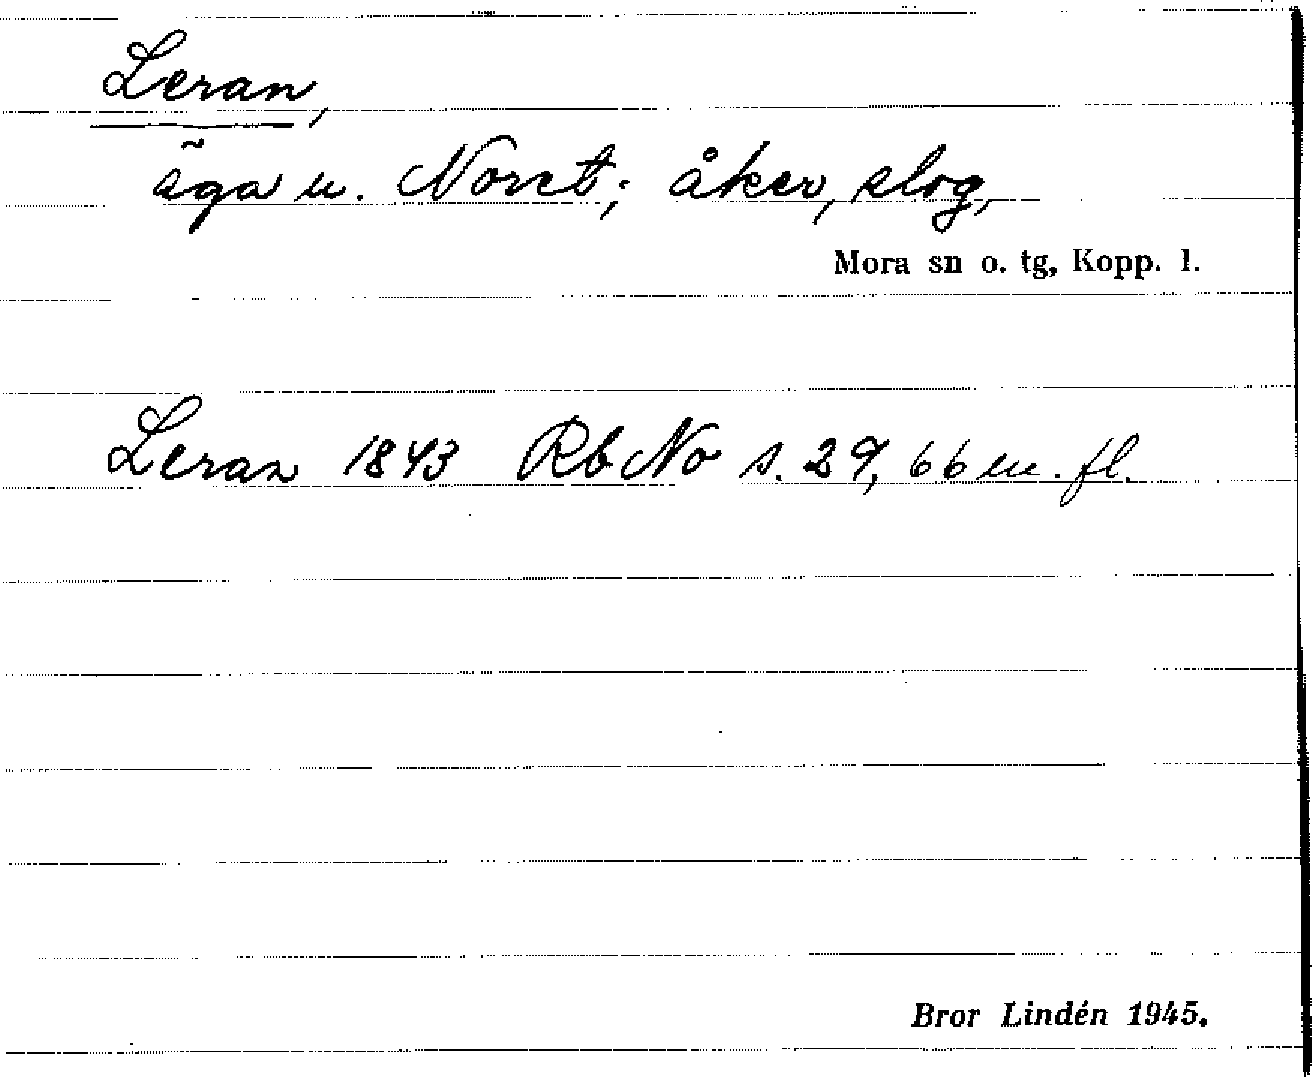 Leran,
äga u. Noret; åker, slog,
Mora sn o. tg, Kopp. l.
Leran 1843 Rb No s. 29, 66 m. fl.
Bror Lindén 1945.